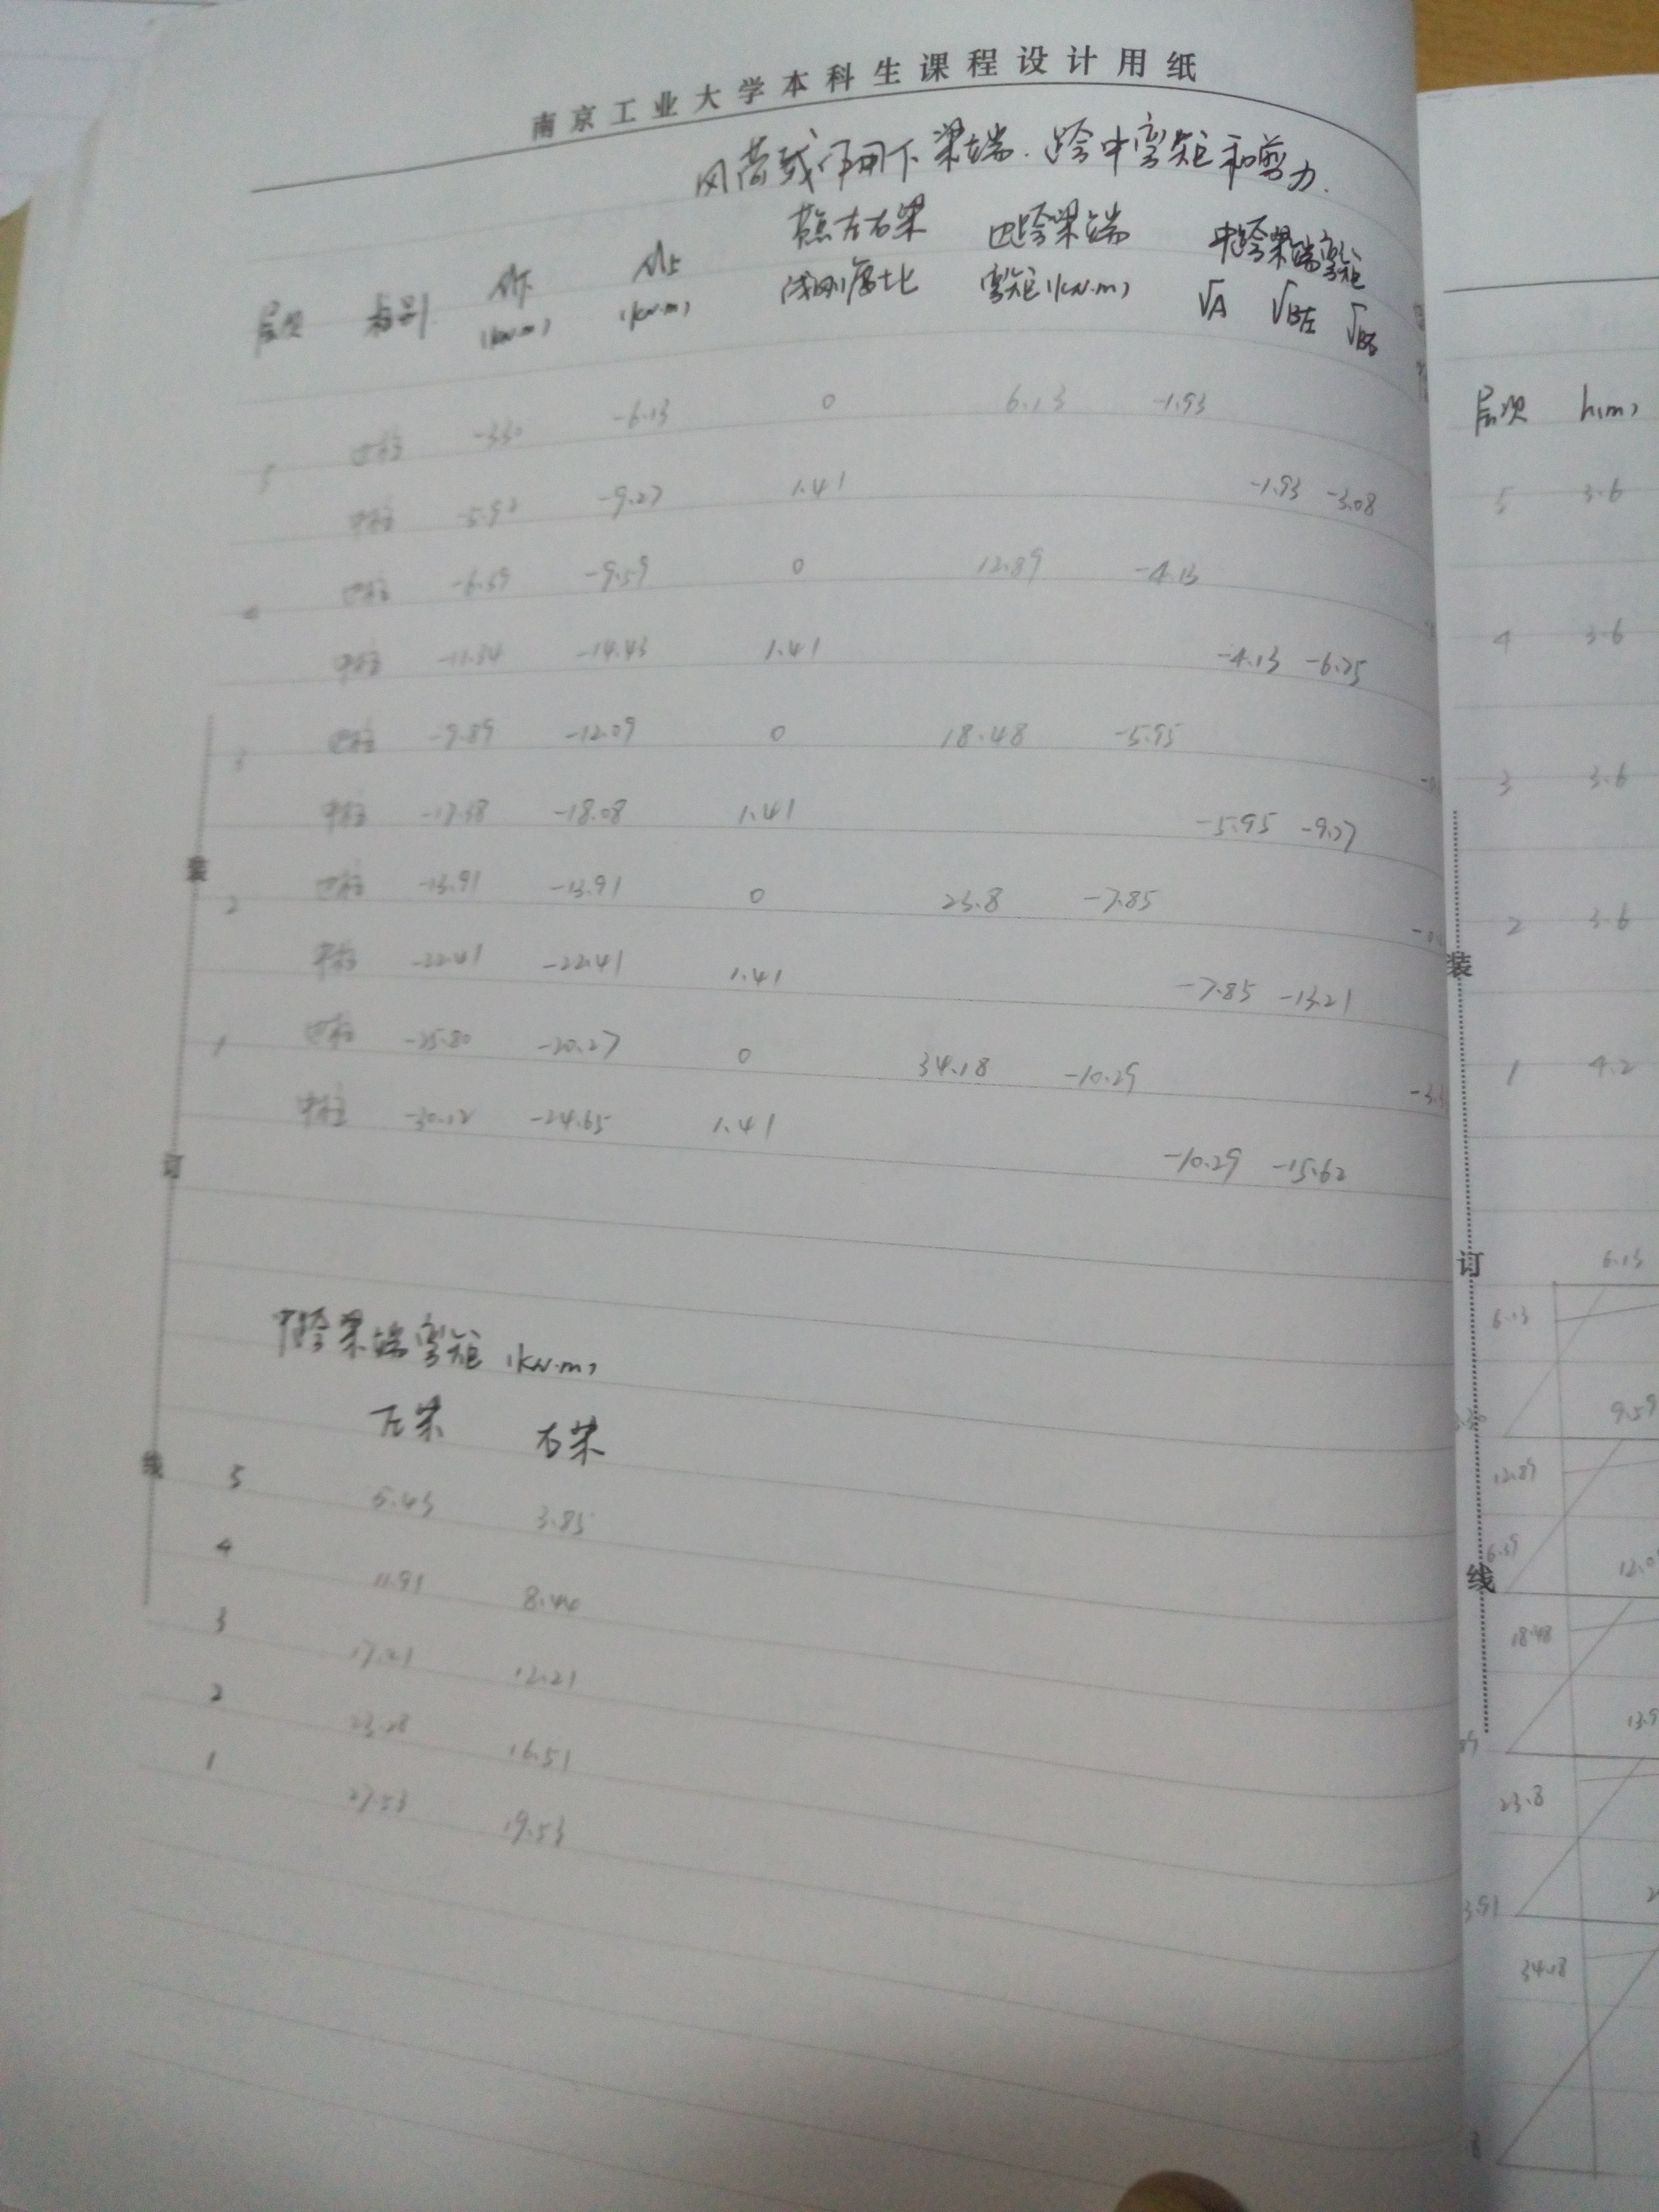 南京工业大学本科生课程设计用纸
风荷载作用下梁端.跨中弯矩和剪力.
层次 柱别 M下(kN·m) M上(kN·m) 节点左右梁线刚度比 边跨梁端弯矩(kN.m) 中跨梁端弯矩 VA VB左 VB右
5 边柱 -3.30 -6.13 0 6.13 -1.93
中柱 -5.92 -9.27 1.41 -1.93 -3.08
4 边柱 -6.39 -9.59 0 12.89 -4.13
中柱 -11.34 -14.43 1.41 -4.13 -6.25
3 边柱 -9.89 -12.09 0 18.48 -5.95
中柱 -17.38 -18.08 1.41 -5.95 -9.27
2 边柱 -13.91 -13.91 0 23.8 -7.85
中柱 -22.41 -22.41 1.41 -7.85 -13.21
1 边柱 -25.80 -20.27 0 34.18 -10.29
中柱 -30.12 -24.65 1.41 -10.29 -15.62
中跨梁端弯矩 (kN.m)
左梁 右梁
5 5.43 3.85
4 11.91 8.40
3 17.21 12.21
2 23.28 16.51
1 27.53 19.53
装
订
线
层次 h(m)
5 3.6
4 3.6
3 3.6
2 3.6
1 4.2
装
订
线
6.13
6.13
9.59
12.89
6.39
18.48
23.8
34.18